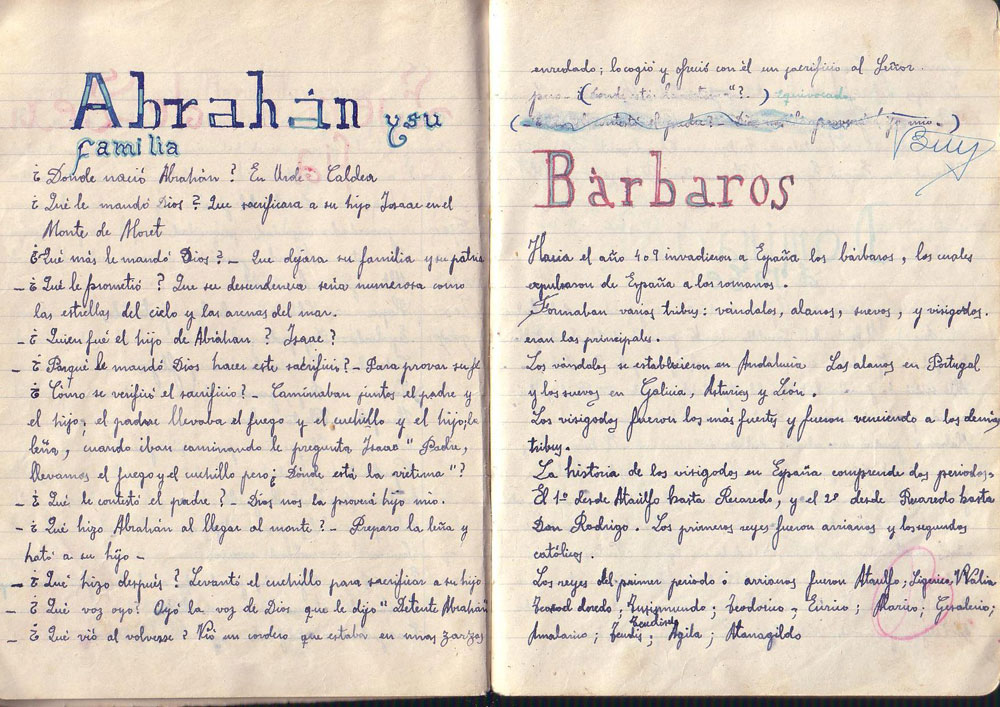 Abrahán y su
familia
¿ Donde nació Abrahán? En Urde Caldea
¿ Qué le mandó Dios? Que sacrificara a su hijo Isaac en el
Monte de Moret
¿ Qué más le mandó Dios? - Que dejara su familia y su patria
- ¿ Qué le prometió? Que su descendencia seria numerosa como
las estrellas del cielo y las arenas del mar.
- ¿ Quien fué el hijo de Abrahan? Isaac?
- ¿ Porqué le mandó Dios hacer este sacrificio? - Para provar su fe
¿ Cómo se verificó el sacrificio? - Caminaban juntos el padre y
el hijo; el padrae llevaba el fuego y el cuchillo y el hijo; la
leña, cuando iban caminando le pregunta Isaac "Padre,
llevamos el fuego y el cuchillo pero ¿ Dónde está la victima"?
- ¿ Qué le contestó el padre? - Dios nos la proverá hijo mio.
- ¿ Qué hizo Abrahán al llegar al monte? - Preparo la leña y
ható a su hijo -
- ¿ Qué hizo después? Levantó el cuchillo para sacrificar a su hijo
- ¿ Qué voz oyo? Oyó la voz de Dios que le dijo "Detente Abrahán
- ¿ Qué vió al volverse? Vió un cordero que estaba en unas zarzas
enredado; lo cogió y ofreció con él un sacrificio al Señor
pero - ¿(Donde está la victima"?) equivocada
( contestó el padre? - Dios nos la proverá hijo mio. )
Bien
Bárbaros
Hacia el año 409 invadieron a España los bárbaros, los cuales
expulsaron de España a los romanos.
Formaban varias tribus: vándalos, alanos, suevos, y visigodos.
eran las principales.
Los vándalos se establecieron en Andalucia Los alanos en Portugal
y los suevos en Galicia, Asturias y León.
Los visigodos fueron los más fuertes y fueron venciendo a los demás
tribus.
La historia de los visigodos en España comprende dos periodos.
El 1º desde Ataúlfo hasta Recaredo, y el 2º desde Recaredo hasta
Don Rodrigo. Los primeros reyes fueron arrianos y los segundos
católicos.
Los reyes del primer periodo ó arrianos fueron Ataulfo; Sigerico, Walia
Teodoredo; Turismundo; Teodorico, Eurico; Alarico; Gesaleico;
Amalarico; Teudis; Teudiselo Agila; Atanagildo